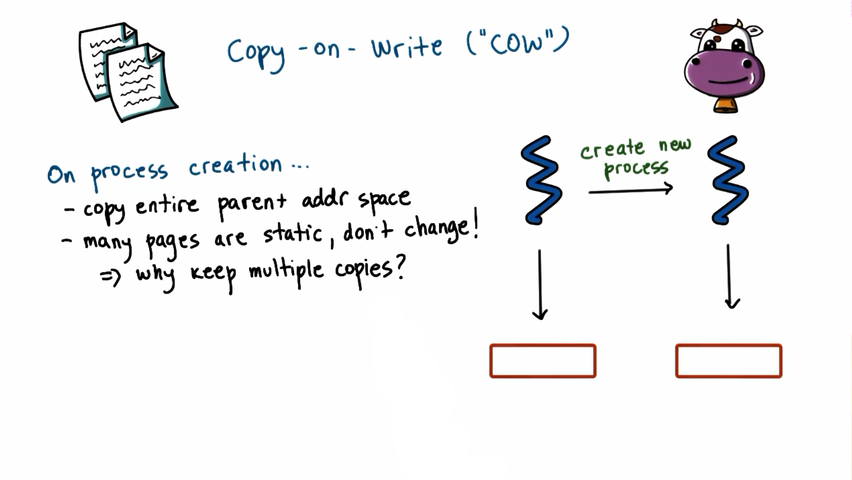 Copy-on-Write ("COW")
On process creation...
- copy entire parent addr space
- many pages are static, don't change!
⇒ why keep multiple copies?
create new
process